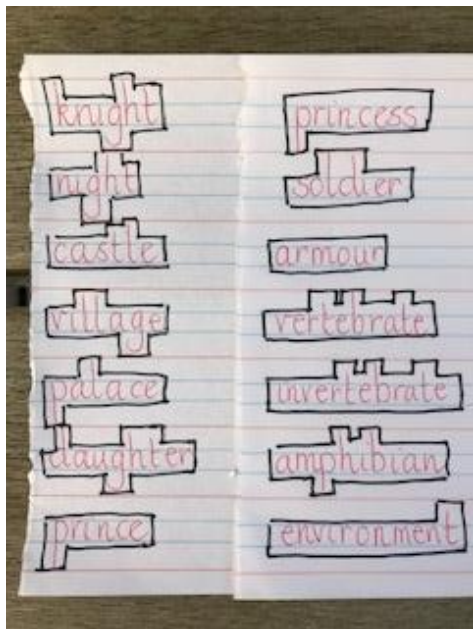 knight
night
castle
village
palace
daughter
prince
princess
soldier
armour
vertebrate
invertebrate
amphibian
environment